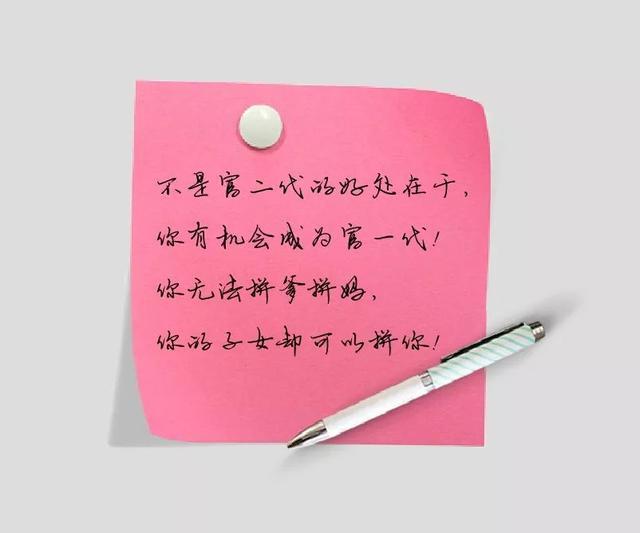 不是官二代的好处在于,
你有机会成为官一代!
你无法拼爹拼妈,
你的子女却可以拼你!